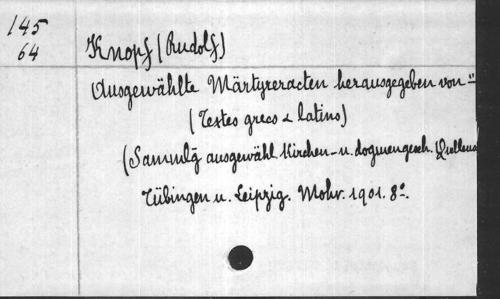 145
64
Knopf (Rudolf)
Ausgewählte Märtyreracten herausgegeben von -"
(Textes grecs & latins)
(Sammlg ausgewähl Kirchen- u. dogmengesch. Quellens
Tübingen u. Leipzig. Mohr. 1901. 8°.